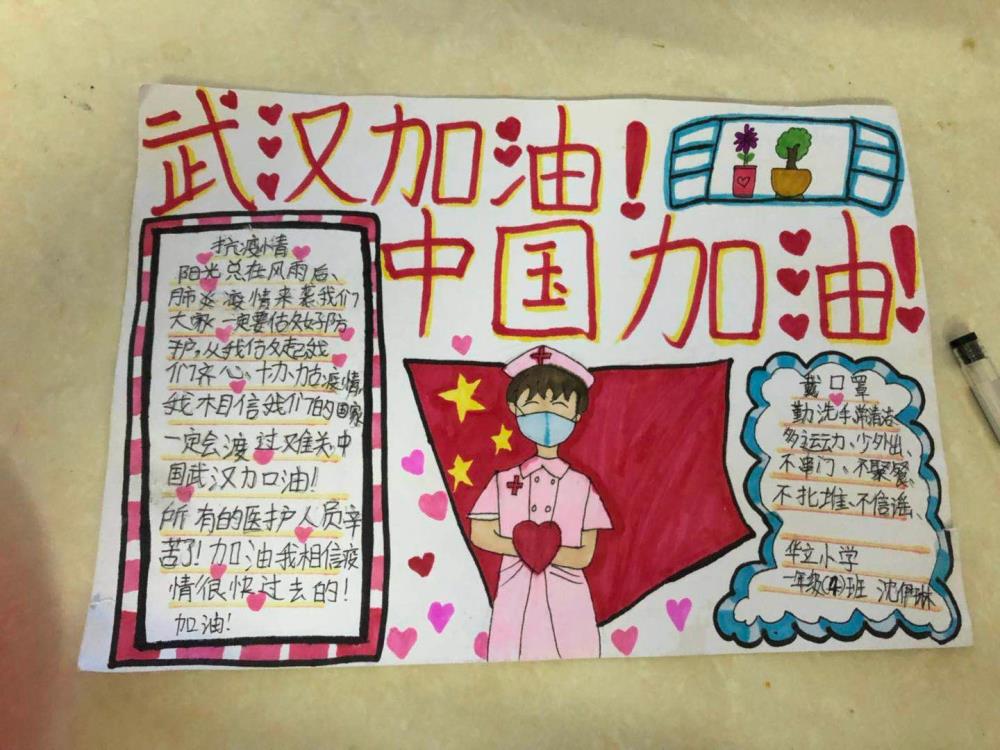 武汉加油！
中国加油！
抗疫情
阳光总在风雨后、
肺炎疫情来袭我们
大家一定要估好防
护，从我估起我
们齐心协力抗疫情，
我相信我们的国家
一定会渡过难关，中
国武汉加油！
所有的医护人员辛
苦了！加油我相信疫
情很快过去的！
加油！
戴口罩
勤洗手、常清洁、
多运动、少外出、
不串门、不聚餐、
不扎堆、不信谣、
华立小学
一年级(4)班 沈伊琳